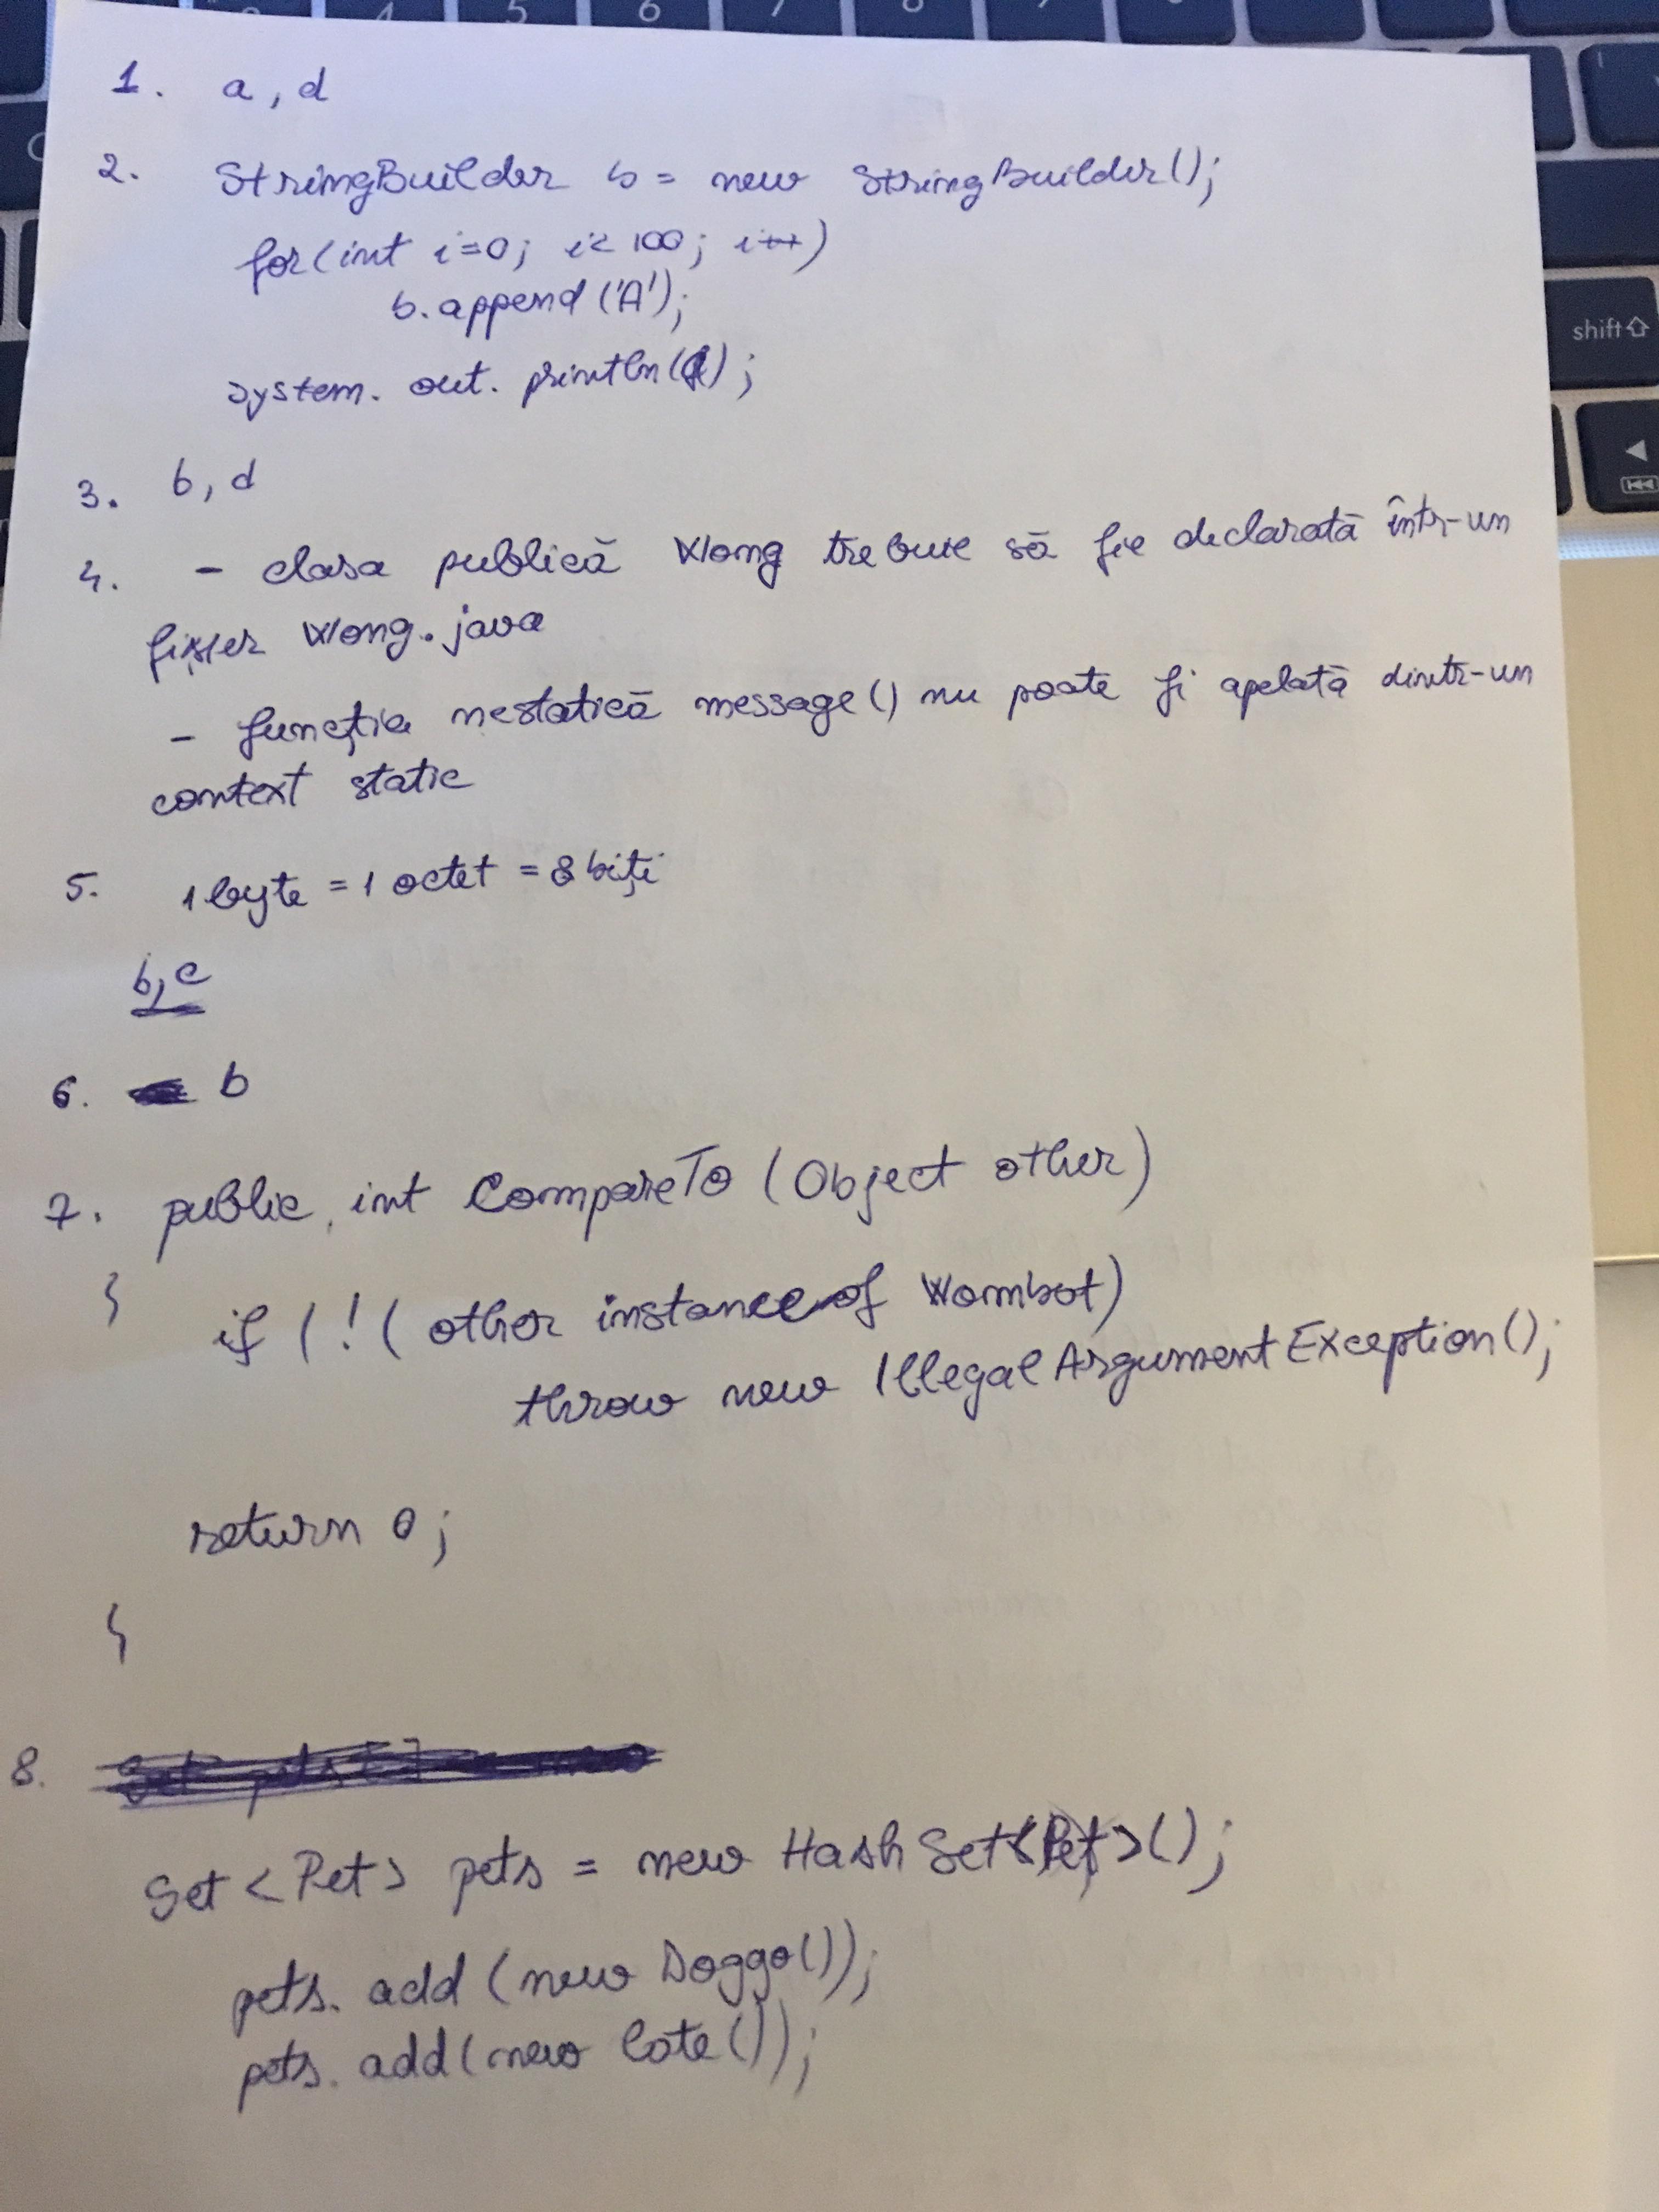 1. a, d
2. StringBuilder b = new StringBuilder();
for(int i=0; i<100; i++)
b.append('A');
System. out. println( );
3. b, d
4. - clasa publică Wong trebuie să fie declarată într-un
fișier Wong.java
- funcția nestatică message() nu poate fi apelată dintr-un
context static
5. 1 byte = 1 octet = 8 biți
b, c
6. b
7. public int CompareTo (Object other)
{
if (!( other instanceof Wombat)
throw new IllegalArgumentException();
return 0;
}
8.
Set <Pet> pets = new HashSet<Pet>();
pets. add (new Doggo());
pets. add(new Cate());